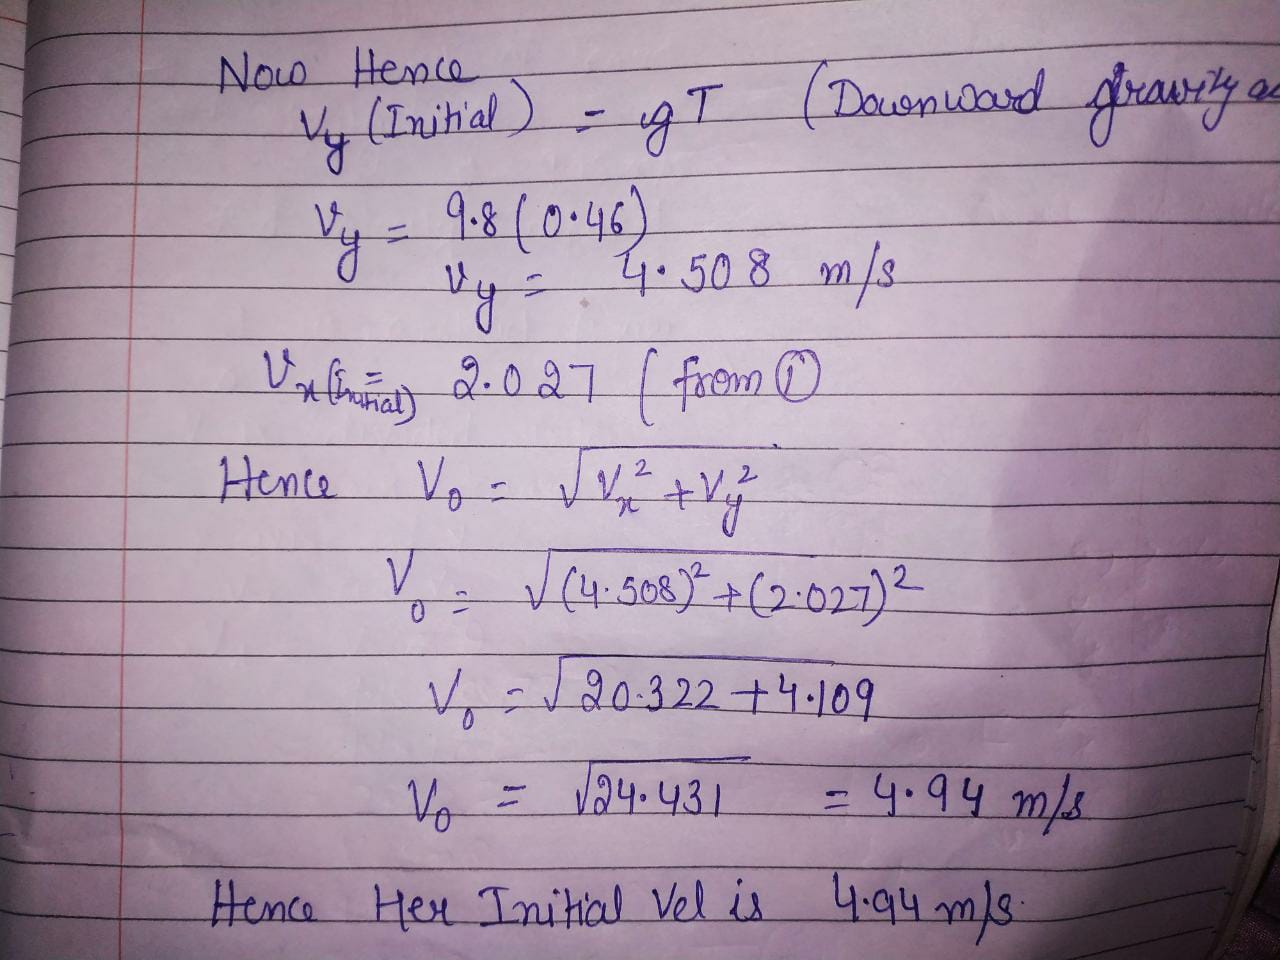 Now Hence
Vy (Initial) = gT (Downward gravity
Vy = 9.8 (0.46)
Vy = 4.508 m/s
Vx (Initial) = 2.027 (from ①
Hence V₀ = √Vx² + Vy²
V₀ = √(4.508)² + (2.027)²
V₀ = √20.322 + 4.109
V₀ = √24.431 = 4.94 m/s
Hence Her Initial Vel is 4.94 m/s.